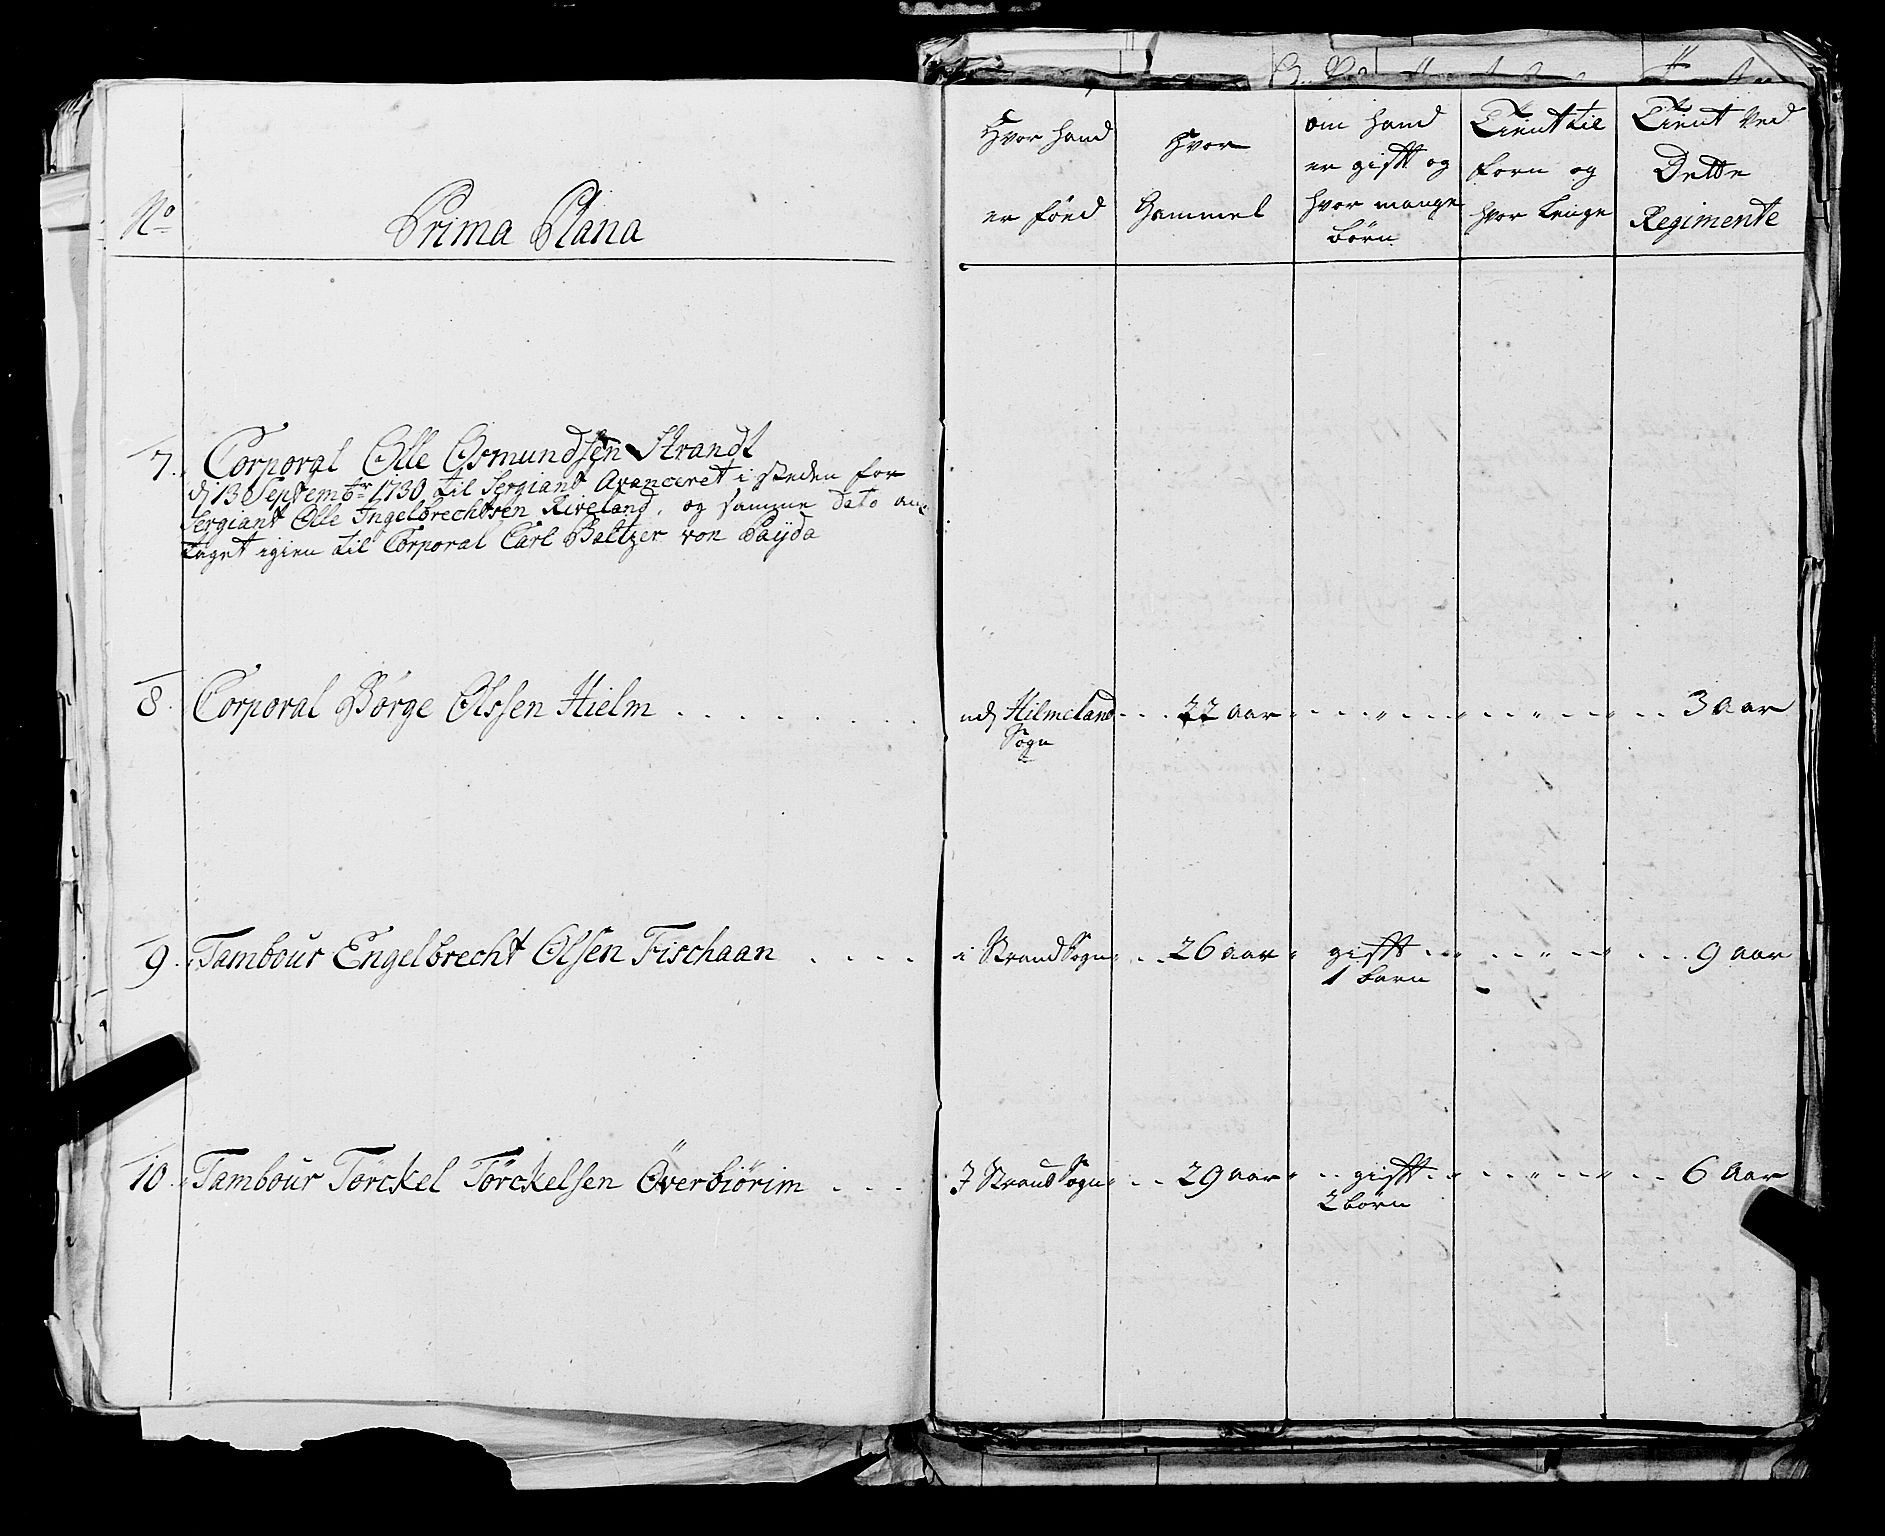 No
Prima Plana
Hvor hand
er föed
Hvor
Gammel
om hand
er gifft og
hvor mange
börn
Tient til
forn og
hvor Lenge
Tient ved
Dette
Regimente
7. Corporal Olle Osmundsen Strandt
d 13 Septembr 1730 til Sergiant Avanceret i steden for
Sergiant Olle Ingelbrechtsen Riveland, og samme dato an
taget igien til Corporal Carl Baltzer von Paÿda
8. Corporal Börge Olssen Hielm . . . . . . . . ud Hilmeland . . . 22 aar . . . 3 aar
Sogn
9. Tambour Engelbrecht Olsen Fischaan . . . . i Strand Sogn . . . 26 aar gifft . . . 9 aar
1 barn
10. Tambour Törckel Törckelsen Överbiörim . . . I Strand Sogn . . . 29 aar . . gifft . . . 6 aar
2 börn